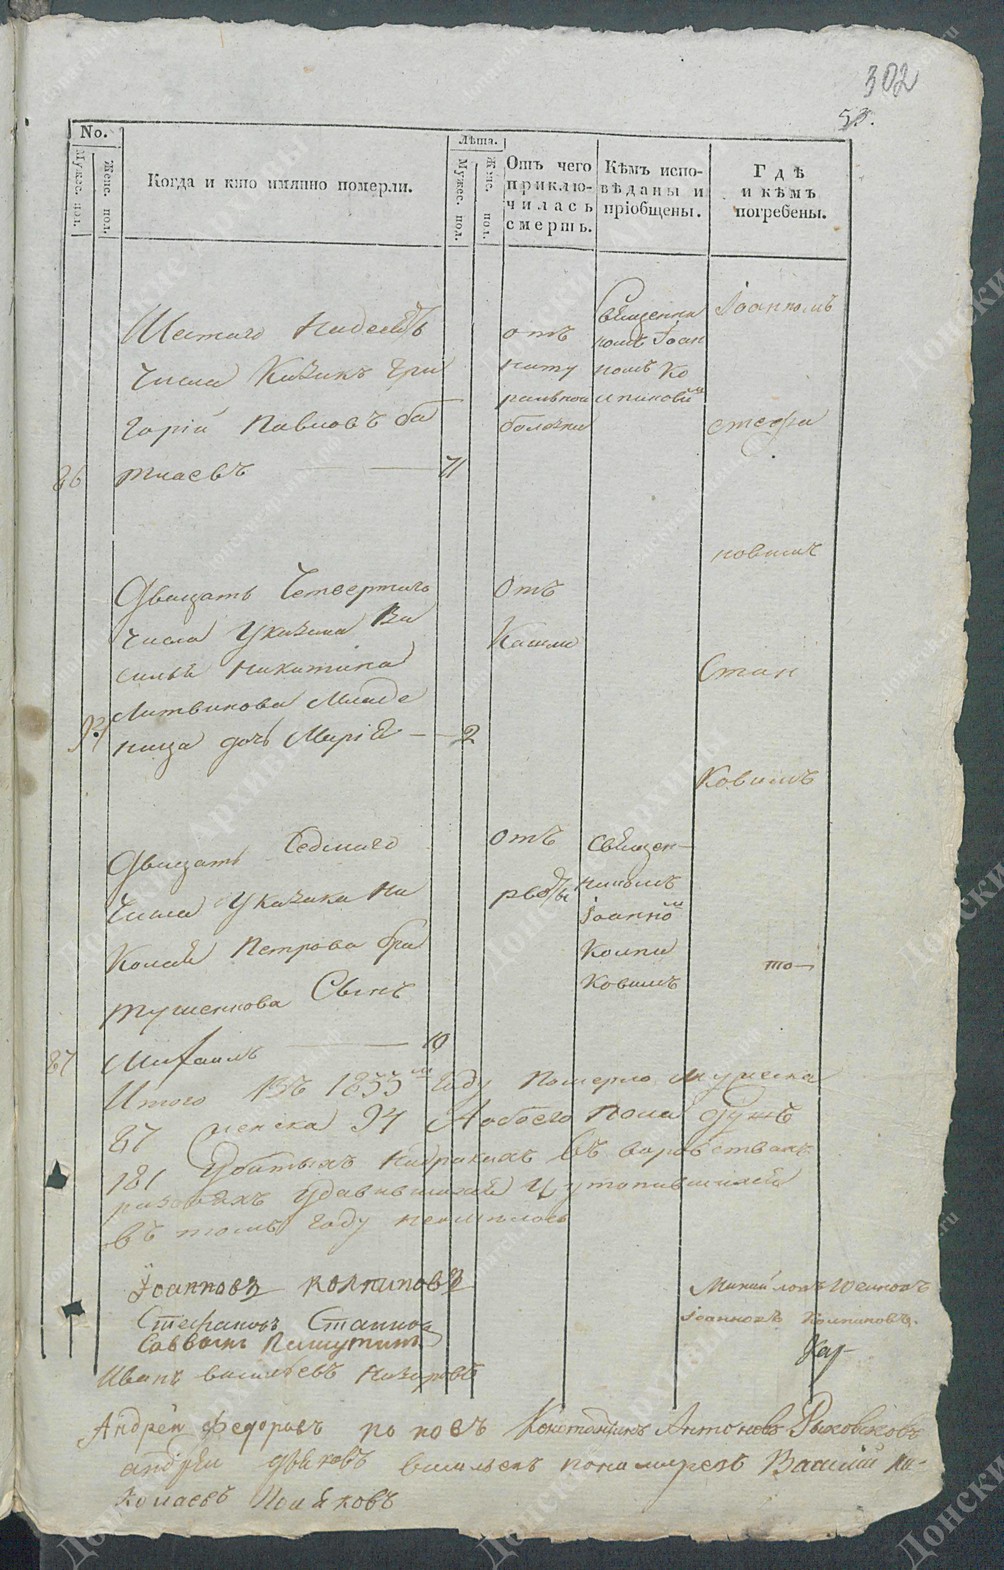 302
53.
No.
Мужес. пол.
Женс. пол.
Когда и кто имянно померли.
Лѣта.
Мужес. пол.
Женс. пол.
Отъ чего
приклю-
чилась
смерть.
Кѣмъ испо-
вѣданы и
пріобщены.
Гдѣ
и кѣмъ
погребены.
Шестаго надесять
числа Казакъ Гри
горій Павловъ ба
26
тлаевъ
71
отъ
нату
ральной
болѣзни
Священни
комъ Іоан
номъ Ко
лпиковы
Іоанномъ
стефа
новымъ
Двацать Четвертаго
числа Указака Ва
силья Никитина
Литвинова Младе
ница дочь Марія
2
Отъ
Кашля
Стан
Ковымъ
Двацать Седмаго
Числа Указака Ни
Колая Петрова бра
тушенкова Сынъ
87
Михаилъ
10
отъ
Священ-
никомъ
Іоанно
Колпи
Ковымъ
то
Итого въ 1833 м Году померло мужска
87 женска 94 А обоего пола душъ
181 Убитыхъ на дракахъ въ воровствахъ
разбояхъ Удавившихся и утопившихся
въ томъ году неимѣлось
Іоанновъ Колпиковъ
Стефановъ Станков
Иванъ васильевъ Назаровъ
Іоанновъ Колпиковъ.
Андрей Федоровъ поповъ Константинъ Антоновъ
андрей васильевъ понамаревъ Василій Ни-
колаевъ Поляковъ